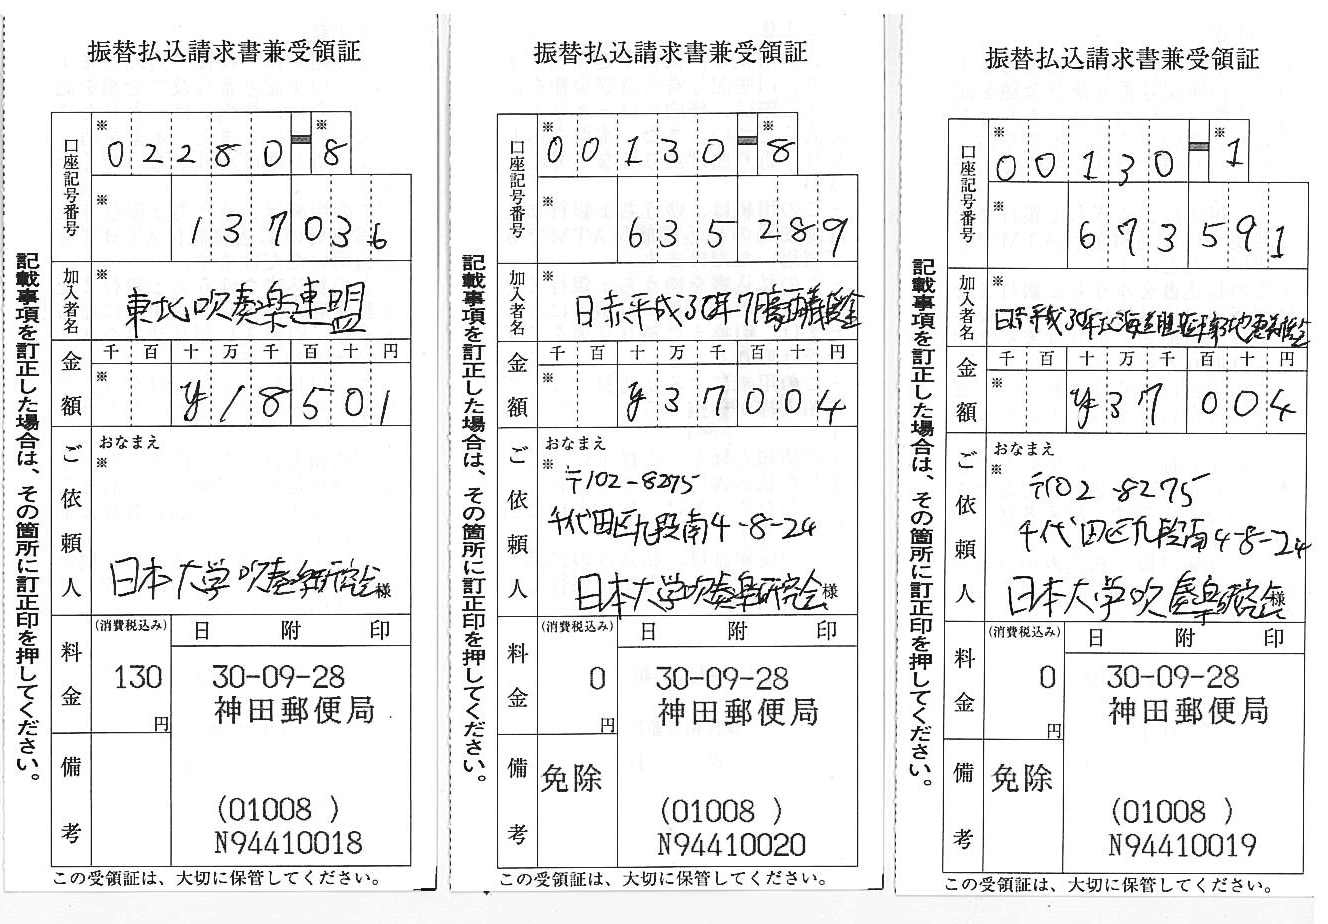 振替払込請求書兼受領証
口座記号番号
※ ※
02280-8
※
137036
加入者名
※
東北吹奏楽連盟
金額
千 百 十 万 千 百 十 円
※
¥18501
ご依頼人
おなまえ
※
日本大学吹奏楽研究会様
料金
(消費税込み)
130
円
日 附 印
30-09-28
神田郵便局
備考
(01008 )
N94410018
記載事項を訂正した場合は、その箇所に訂正印を押してください。
この受領証は、大切に保管してください。
振替払込請求書兼受領証
口座記号番号
※ ※
00130-8
※
635289
加入者名
※
日赤平成30年7月豪雨災害義援金
金額
千 百 十 万 千 百 十 円
※
¥37004
ご依頼人
おなまえ
※
〒102-8275
千代田区九段南4-8-24
日本大学吹奏楽研究会様
料金
(消費税込み)
0
円
日 附 印
30-09-28
神田郵便局
備考
免除
(01008 )
N94410020
記載事項を訂正した場合は、その箇所に訂正印を押してください。
この受領証は、大切に保管してください。
振替払込請求書兼受領証
口座記号番号
※ ※
00130-1
※
673591
加入者名
※
日赤平成30年北海道胆振東部地震災害義援金
金額
千 百 十 万 千 百 十 円
※
¥37004
ご依頼人
おなまえ
※
〒102-8275
千代田区九段南4-8-24
日本大学吹奏楽研究会様
料金
(消費税込み)
0
円
日 附 印
30-09-28
神田郵便局
備考
免除
(01008 )
N94410019
記載事項を訂正した場合は、その箇所に訂正印を押してください。
この受領証は、大切に保管してください。